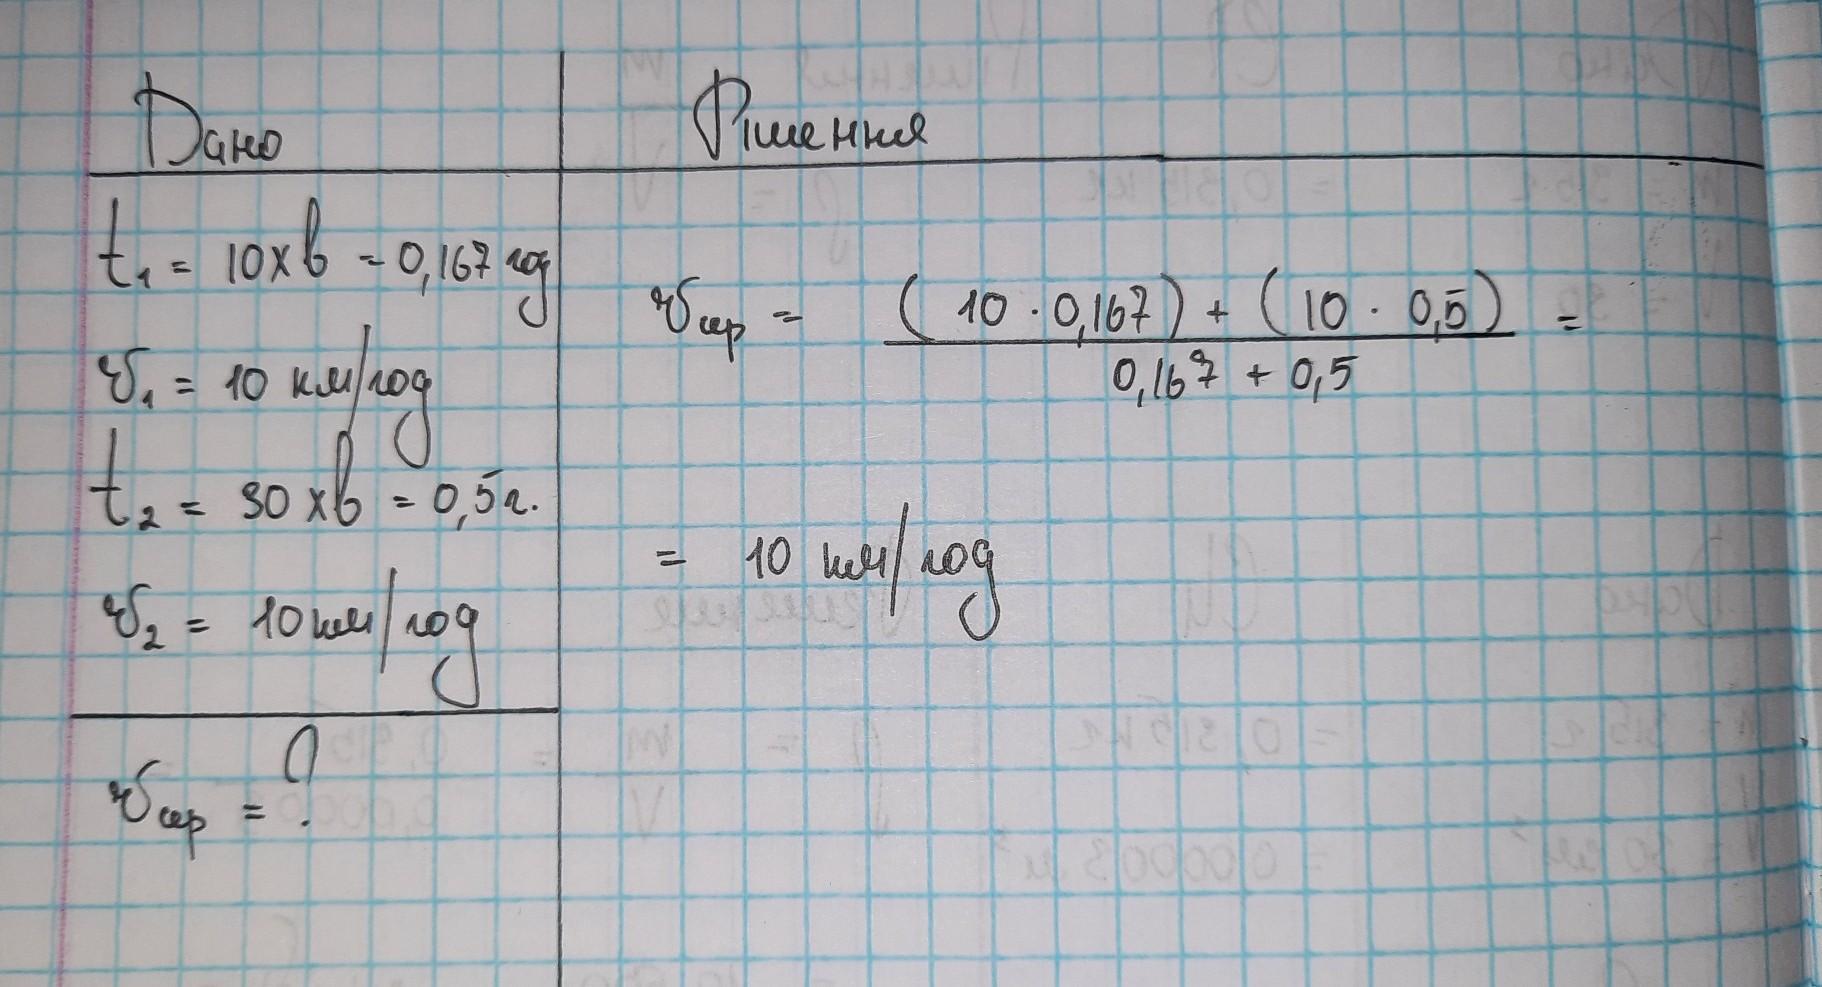 Дано
Рішення
t₁ = 10 хв = 0,167 год
v₁ = 10 км/год
t₂ = 30 хв = 0,5 г.
v₂ = 10 км/год
vсер = ?
vсер = (10 · 0,167) + (10 · 0,5) =
0,167 + 0,5
= 10 км/год